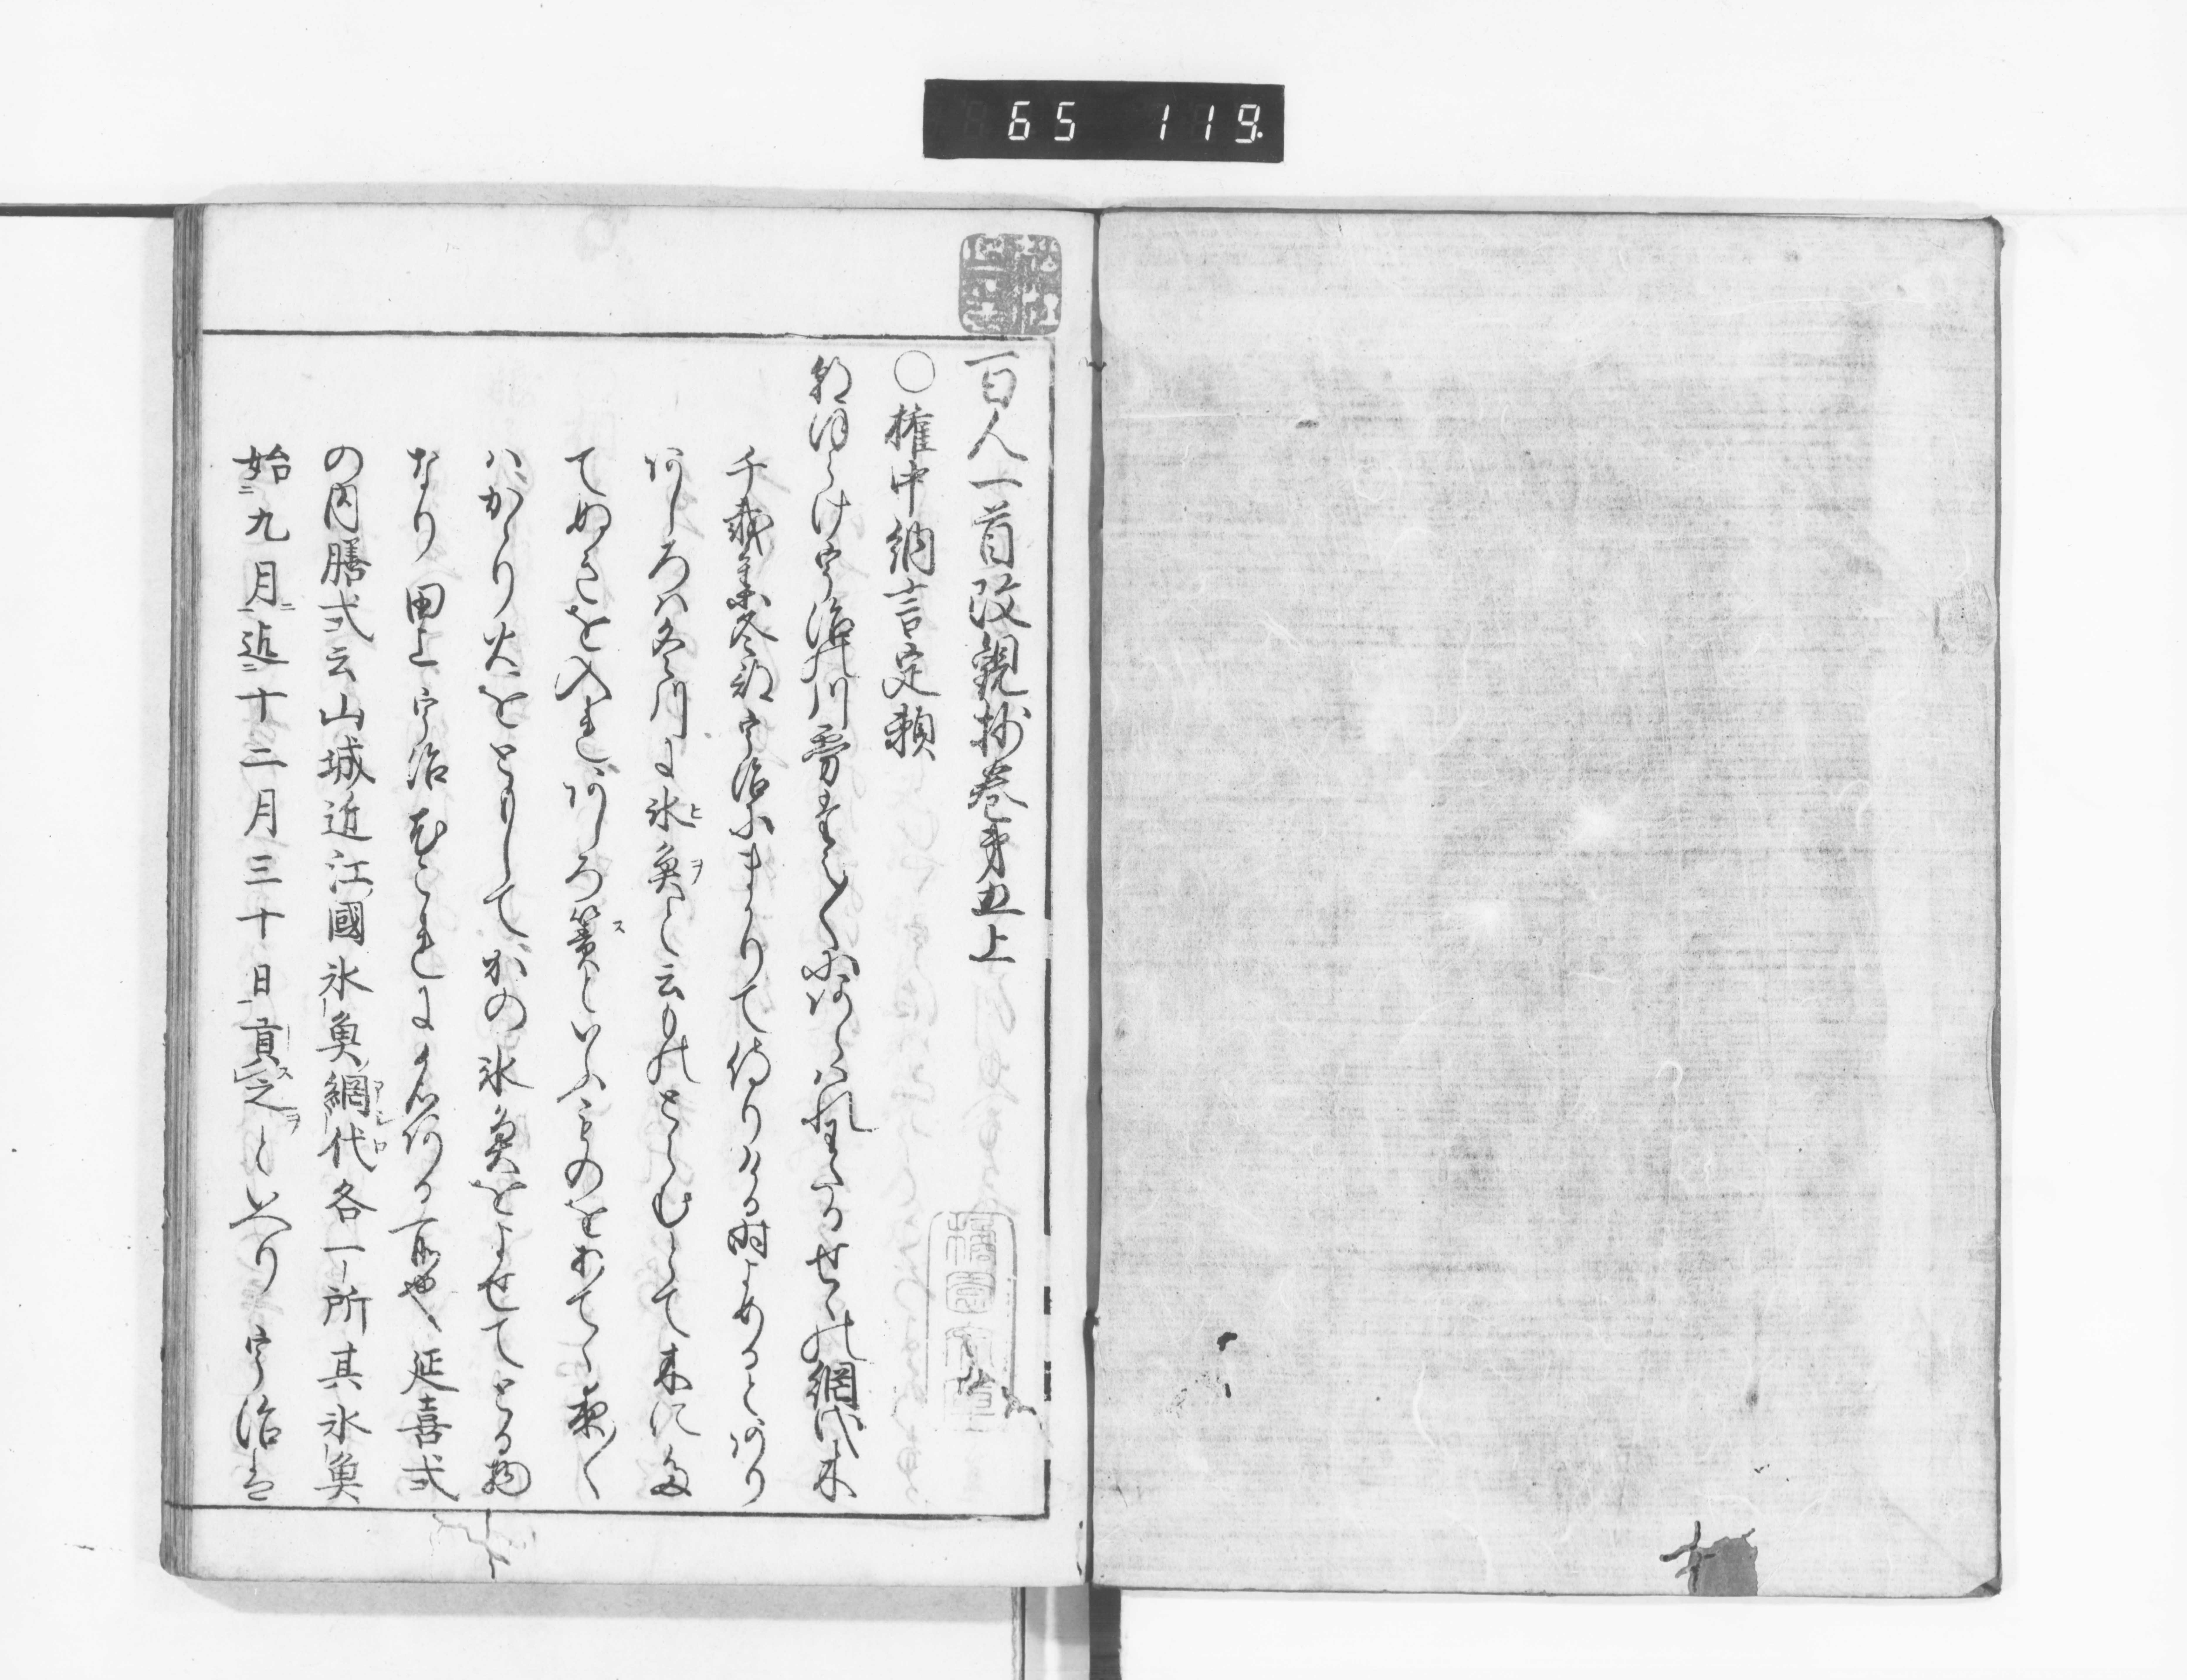 65 119.
百人一首改観抄巻第五上
○権中納言定頼
朝ほらけ宇治の川霧たえ〳〵にあらはれわたるせゝの網代木
千載集冬部宇治にまかりて侍りける時よめるとあり
あしろは冬川に氷魚と云ものとらむとて木におほ
てぬきを入れあしろ簀といふものをあてゝ夜〳〵
はかゝり火をともしてかの氷魚をよせてとる物
なり田上宇治むねとこれによるある所也延喜式
の内膳式云山城近江國氷魚網代各一所其氷魚
始九月迄十二月三十日貢之といへり宇治は